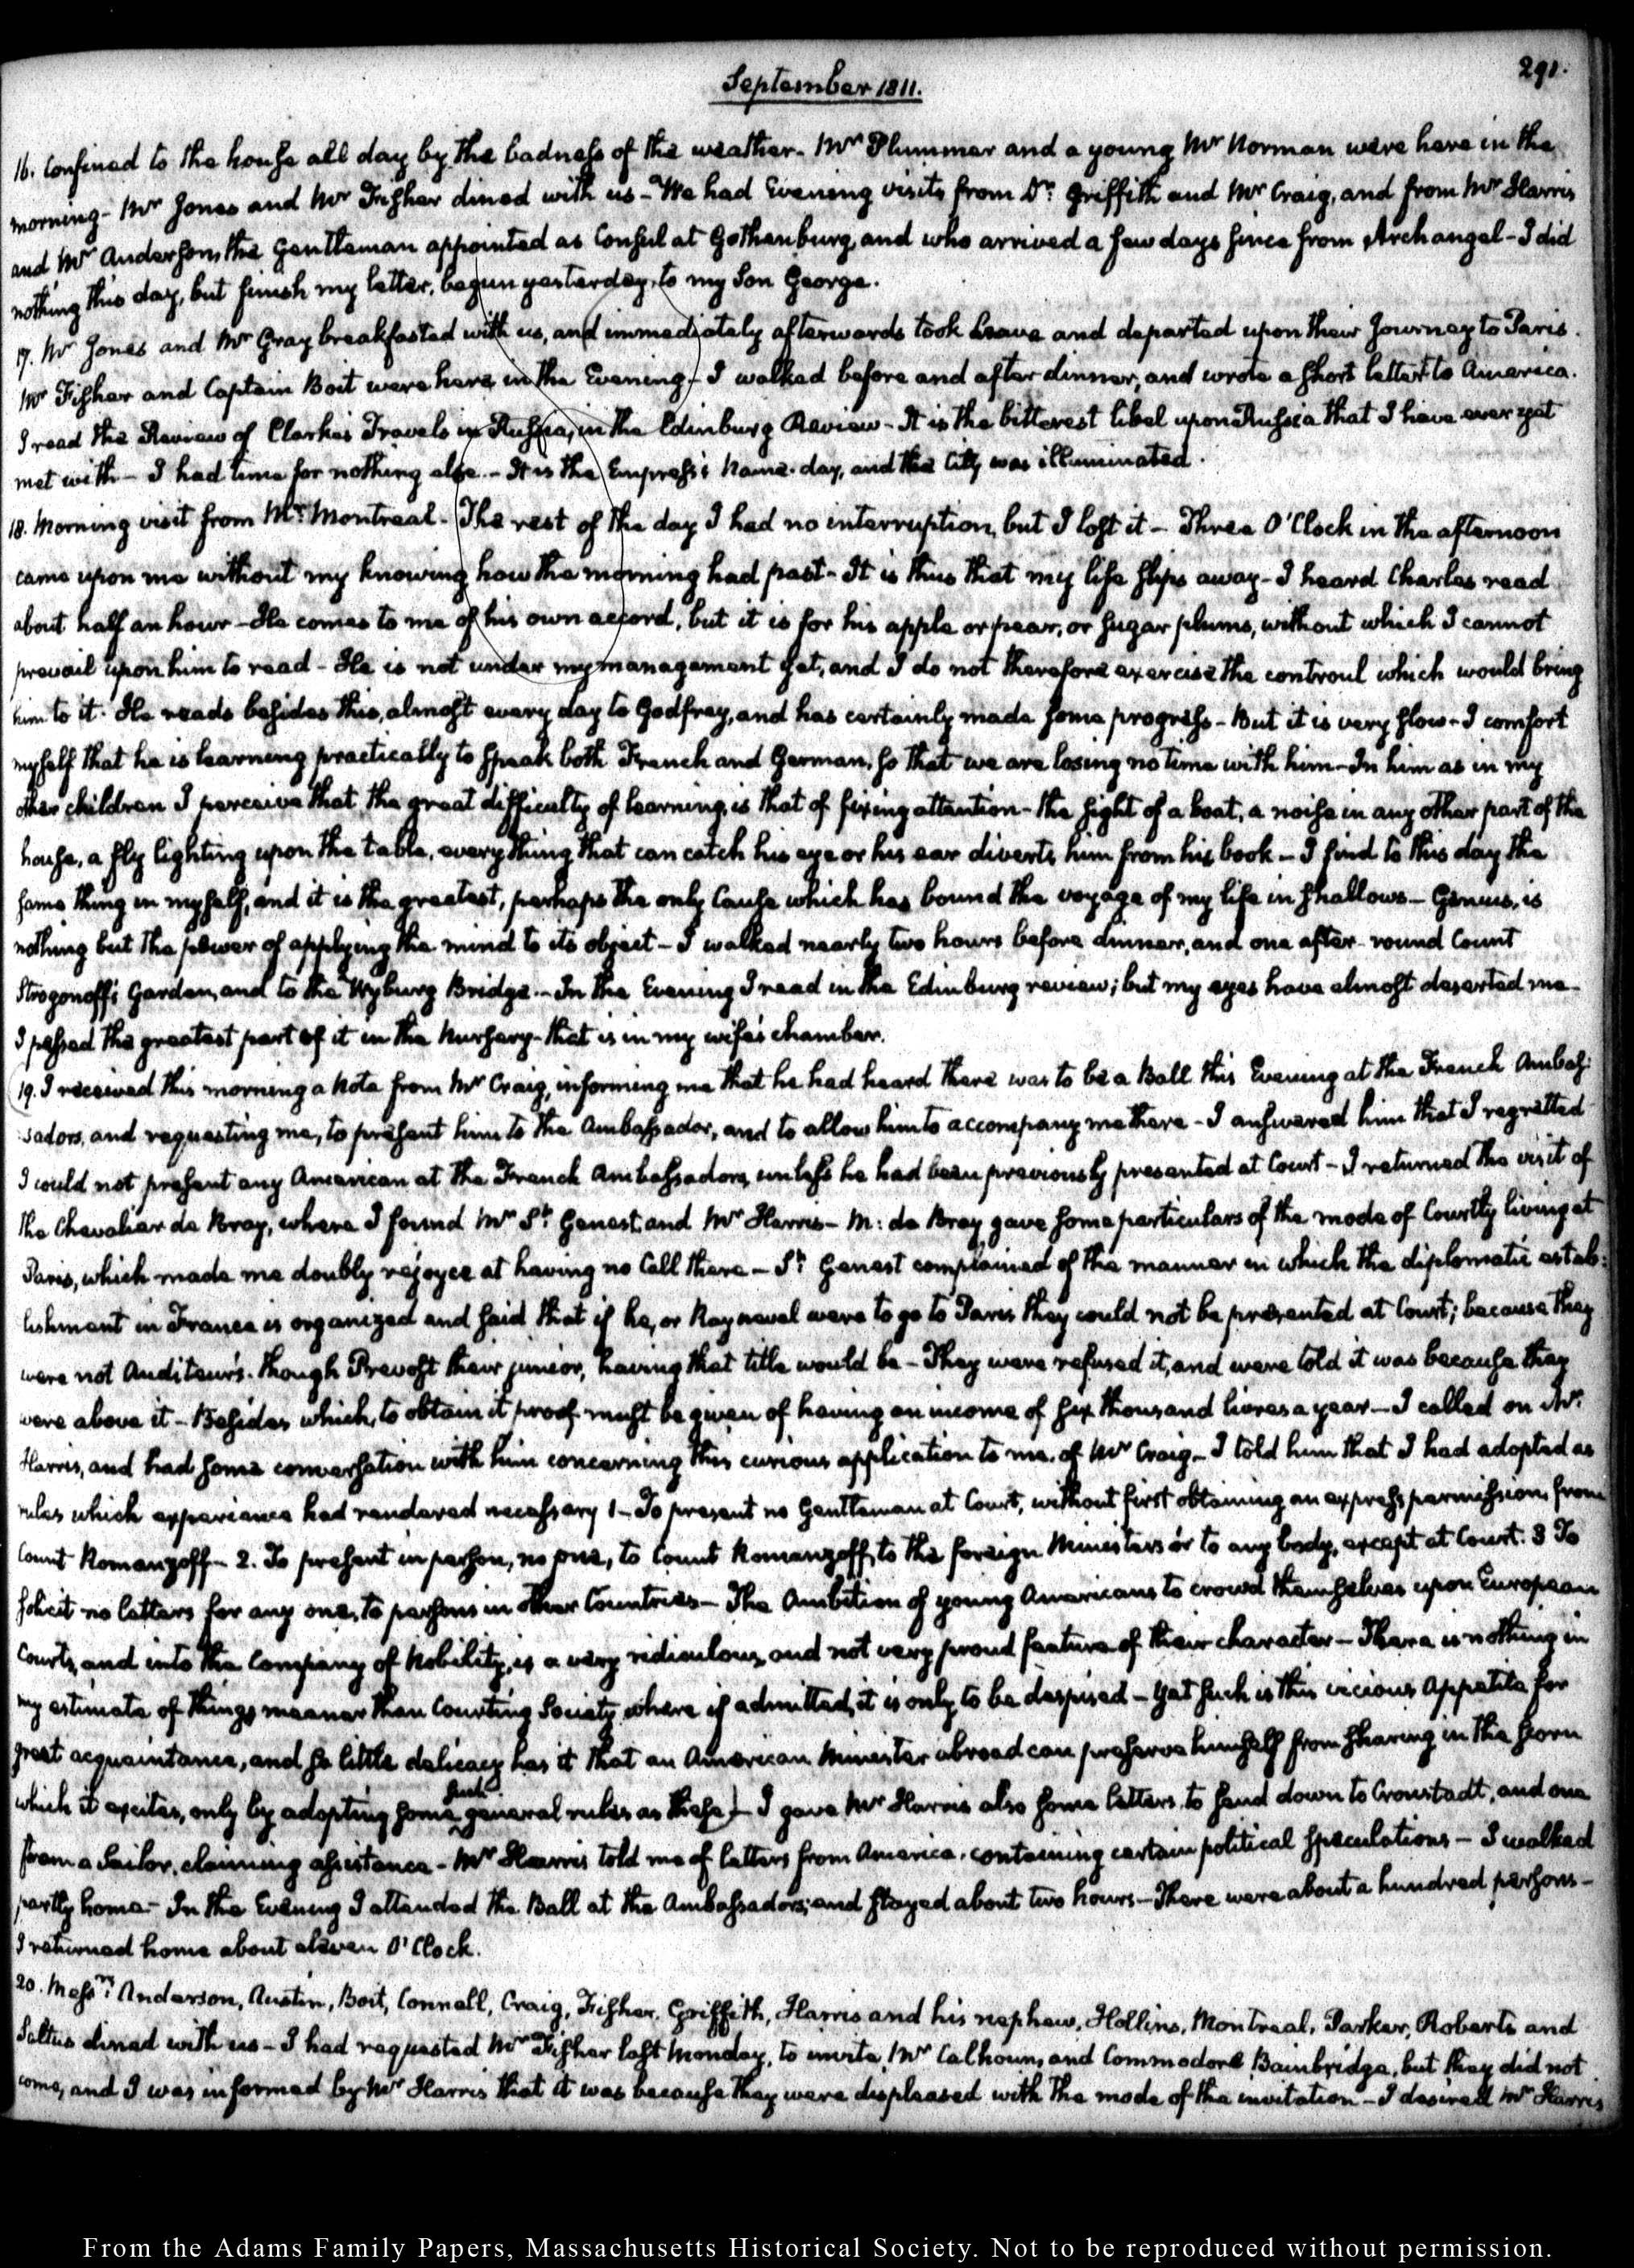 291.
September 1811.
16. Confined to the house all day by the badness of the weather. Mr Plummer and a young Mr Norman were here in the
morning - Mr Jones and Mr Fisher dined with us - We had Evening visits from Dr. Griffith and Mr Craig, and from Mr Harris
and Mr Anderson, the Gentleman appointed as Consul at Gothenburg, and who arrived a few days since from Archangel - I did
nothing this day, but finish my letter, begun yesterday, to my Son George.
17. Mr Jones and Mr Gray breakfasted with us, and immediately afterwards took leave and departed upon their Journey to Paris.
Mr Fisher and Captain Boit were here in the Evening - I walked before and after dinner, and wrote a short letter to America.
I read the Review of Clarke's Travels in Russia, in the Edinburg Review - It is the bitterest libel upon Russia that I have ever yet
met with - I had time for nothing else. - It is the Empress's Name-day, and the City was illuminated.
18. Morning visit from Mr. Montreal - The rest of the day I had no interruption, but I lost it - Three O'Clock in the afternoon
came upon me without my knowing how the morning had past - It is thus that my life slips away - I heard Charles read
about half an hour - He comes to me of his own accord, but it is for his apple or pear, or sugar plums, without which I cannot
prevail upon him to read - He is not under my management yet, and I do not therefore exercise the controul which would bring
him to it. He reads besides this, almost every day to Godfrey, and has certainly made some progress - But it is very slow - I comfort
myself that he is learning practically to speak both French and German, so that we are losing no time with him - In him as in my
other children I perceive that the great difficulty of learning, is that of fixing attention - the sight of a boat, a noise in any other part of the
house, a fly lighting upon the table, every thing that can catch his eye or his ear diverts him from his book - I find to this day the
same thing in myself, and it is the greatest, perhaps the only Cause which has bound the voyage of my life in shallows - Genius, is
nothing but the power of applying the mind to its object - I walked nearly two hours before dinner, and one after - round Count
Strogonoff's Garden, and to the Wyburg Bridge. - In the Evening I read in the Edinburg review; but my eyes have almost deserted me -
I passed the greatest part of it in the Nursery - that is in my wife's chamber.
19. I received this morning a Note from Mr Craig, informing me that he had heard there was to be a Ball this Evening at the French Ambas:
:sadors, and requesting me, to present him to the Ambassador, and to allow him to accompany me there - I answered him that I regretted
I could not present any American at the French Ambassadors, unless he had been previously presented at Court - I returned the visit of
the Chevalier de Bray, where I found Mr St. Genest, and Mr Harris - M: de Bray gave some particulars of the mode of Courtly living at
Paris, which made me doubly rejoyce at having no Call there - St. Genest complained of the manner in which the diplomatic estab:
lishment in France is organized and said that if he, or Rayneval were to go to Paris they could not be presented at Court; because they
were not Auditeurs. though Prevost their junior, having that title would be - They were refused it, and were told it was because they
were above it - Besides which, to obtain it proof must be given of having an income of six thousand livres a year - I called on Mr.
Harris, and had some conversation with him concerning this curious application to me, of Mr Craig - I told him that I had adopted as
rules which experience had rendered necessary 1 - To present no Gentleman at Court, without first obtaining an express permission from
Count Romanzoff - 2. To present in person, no one, to Count Romanzoff, to the foreign Ministers or to any body, except at Court. 3 To
solicit no letters for any one, to persons in other Countries - The Ambition of young Americans to crowd themselves upon European
Courts, and into the Company of Nobility, is a very ridiculous, and not very proud feature of their character - There is nothing in
my estimate of things meaner than Courting Society where if admitted, it is only to be despised - Yet such is this vicious Appetite for
great acquaintance, and so little delicacy has it that an American Minister abroad can preserve himself from sharing in the scorn
which it excites, only by adopting some such general rules as these) - I gave Mr Harris also some letters to send down to Cronstadt, and one
from a Sailor, claiming assistance - Mr Harris told me of letters from America, containing certain political speculations - I walked
partly home - In the Evening I attended the Ball at the Ambassadors; and stayed about two hours - There were about a hundred persons -
I returned home about eleven O'Clock.
20. Messrs. Anderson, Austin, Boit, Connell, Craig, Fisher, Griffith, Harris and his nephew, Hollins, Montreal, Parker, Roberts and
Saltus dined with us - I had requested Mr Fisher last Monday, to invite Mr Calhoun, and Commodore Bainbridge, but they did not
come, and I was informed by Mr Harris that it was because they were displeased with the mode of the invitation - I desired Mr Harris
From the Adams Family Papers, Massachusetts Historical Society. Not to be reproduced without permission.